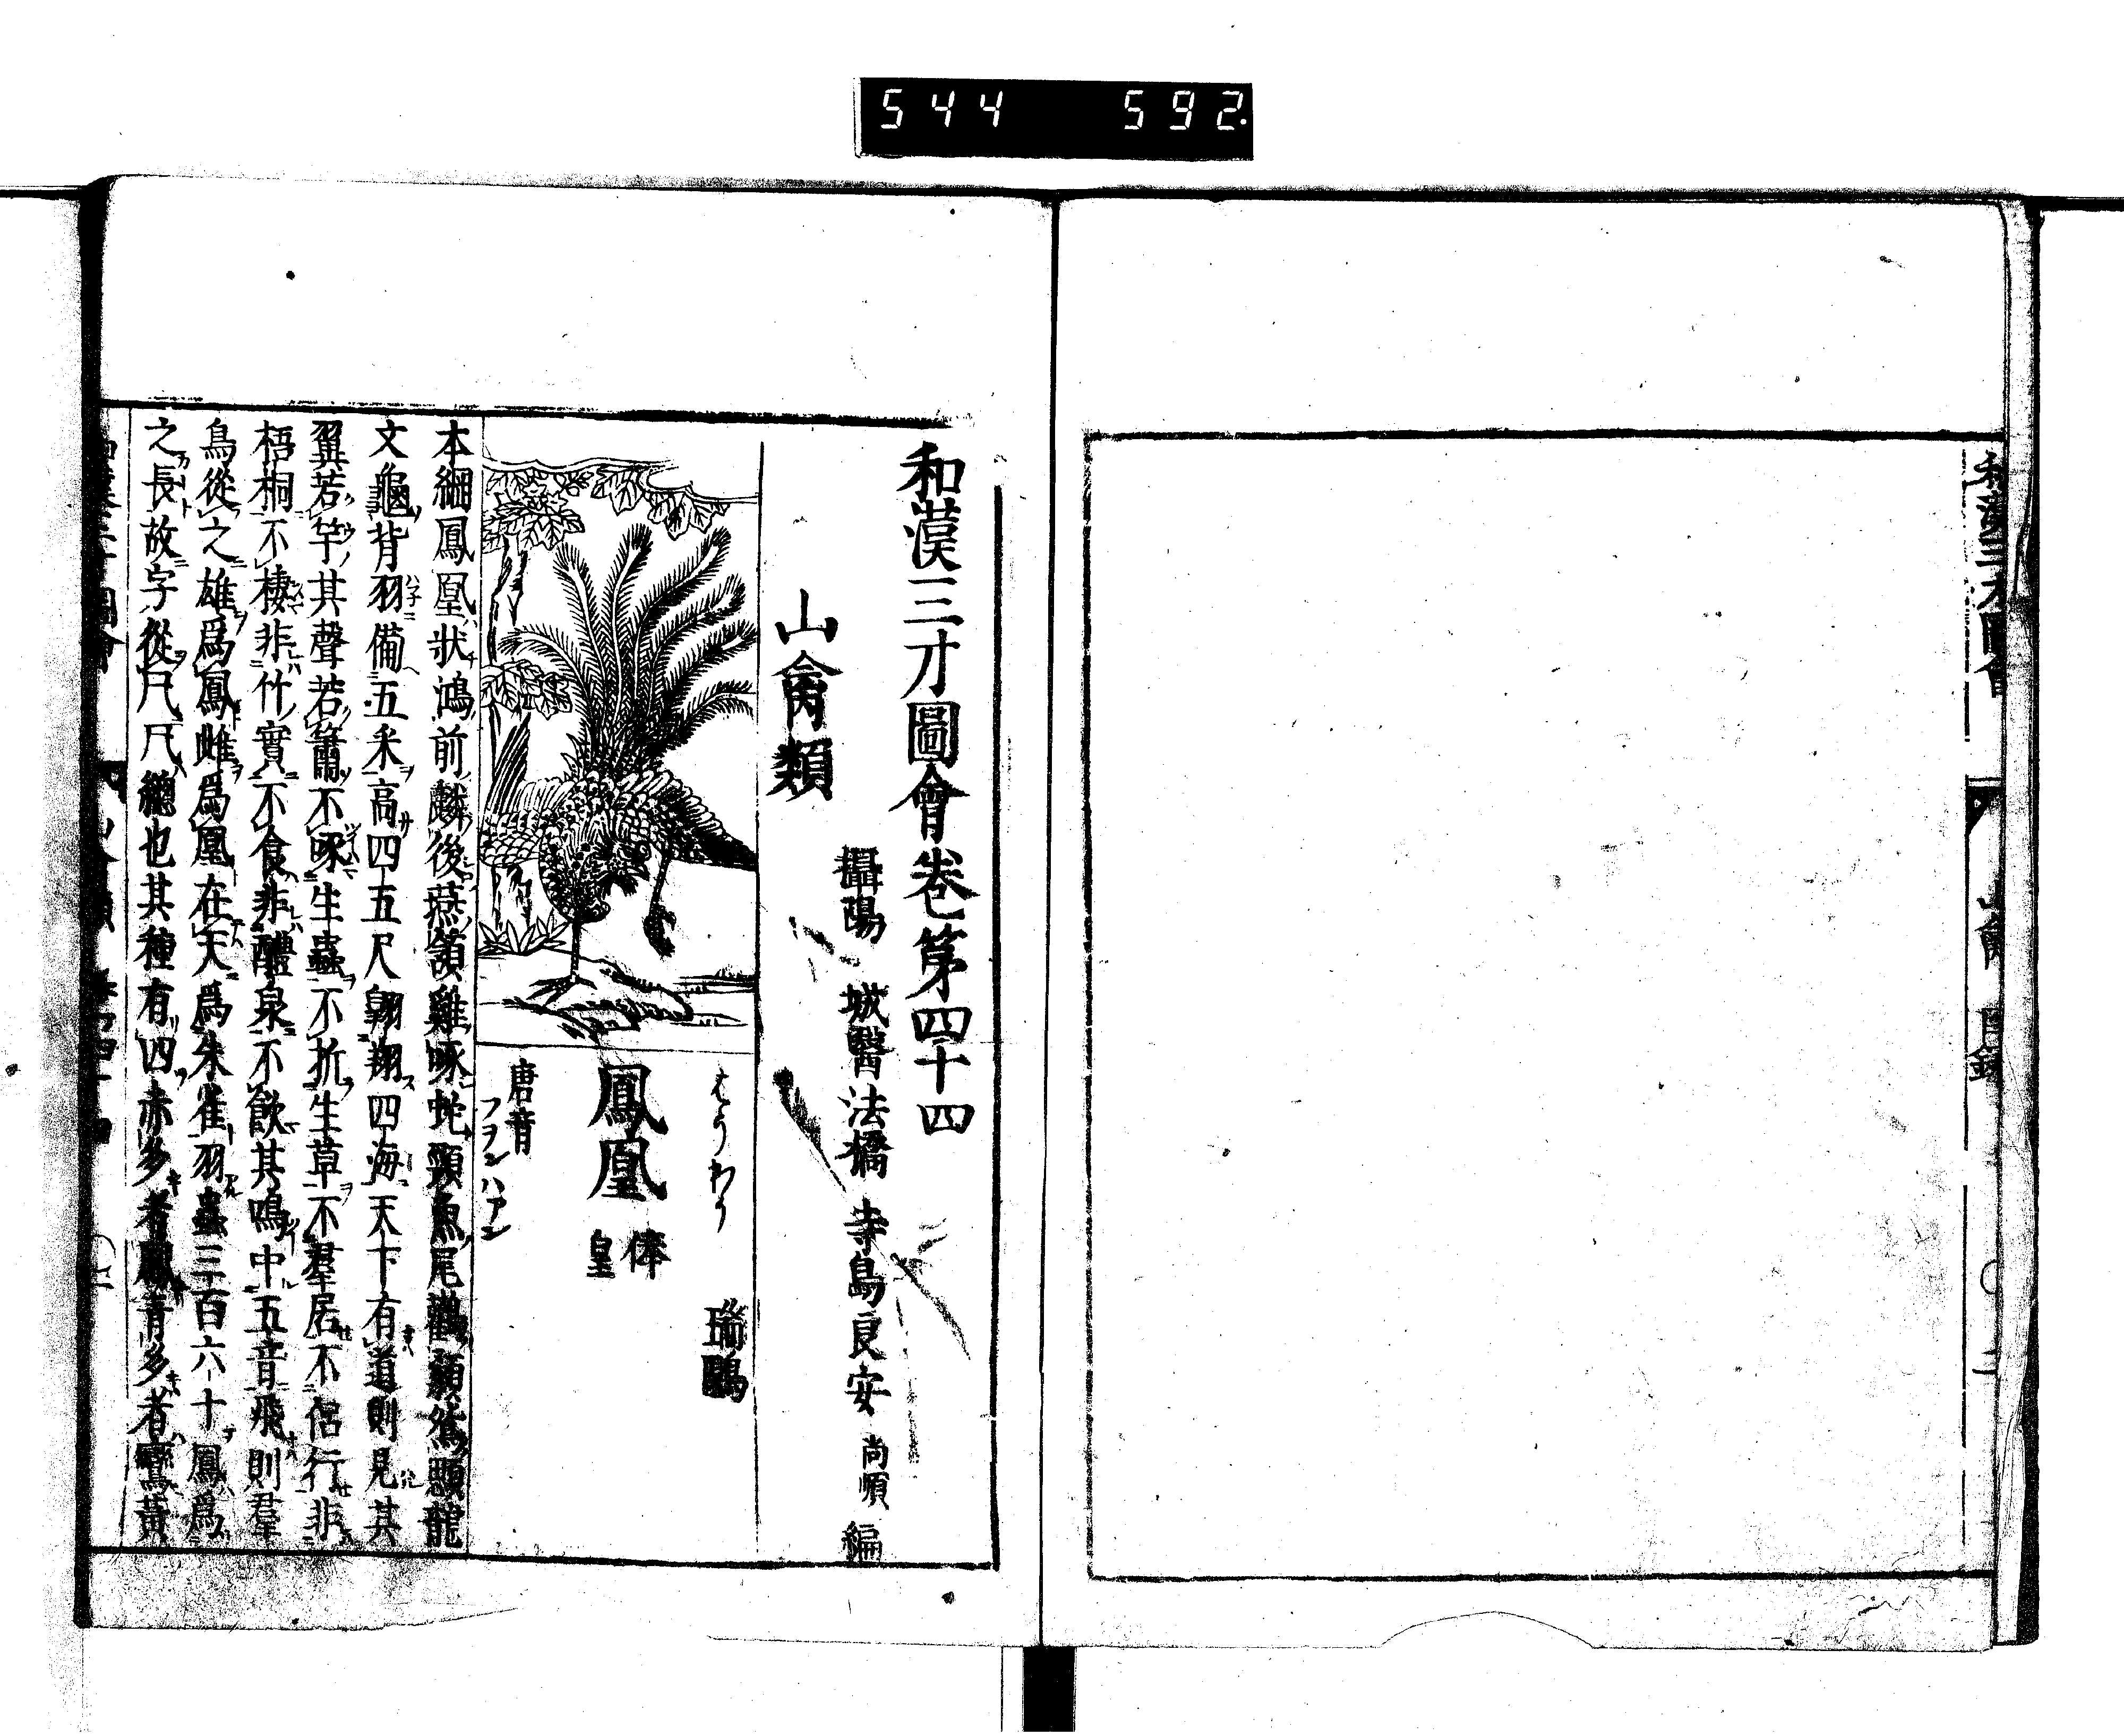 544 592
和漢三才圖會
山禽 目錄 〇 二
和漢三才圖會卷第四十四
攝陽 城醫法橋 寺島良安 尚順 編
山禽類
ほうわう
瑞鶠
鳳凰
俸
皇
唐音
フヲンハアン
本綱鳳凰狀鴻前麟後燕頷雞啄蛇頸魚尾鸛顙鴛顋龍
文龜背羽備五采高四五尺翺翔四海天下有道則見其
翼若竽其聲若簫不啄生蟲不折生草不羣居不侶行非
梧桐不棲非竹實不食非醴泉不飮其鳴中五音飛則羣
鳥從之雄爲鳳雌爲凰在天爲朱雀羽蟲三百六十鳳爲
之長故字從凡凡總也其種有四赤多者鳳青多者鸞黃